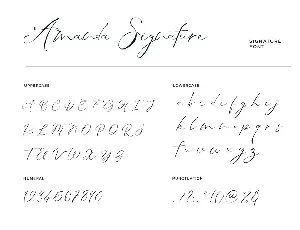 Amanda Signature
SIGNATURE
FONT
UPPERCASE
A B C D E F G H I J
K L M N O P Q R S
T U V W X Y Z
LOWERCASE
a b c d e f g h i j
k l m n o p q r s
t u v w x y z
NUMERAL
1234567890
PUNCTUATION